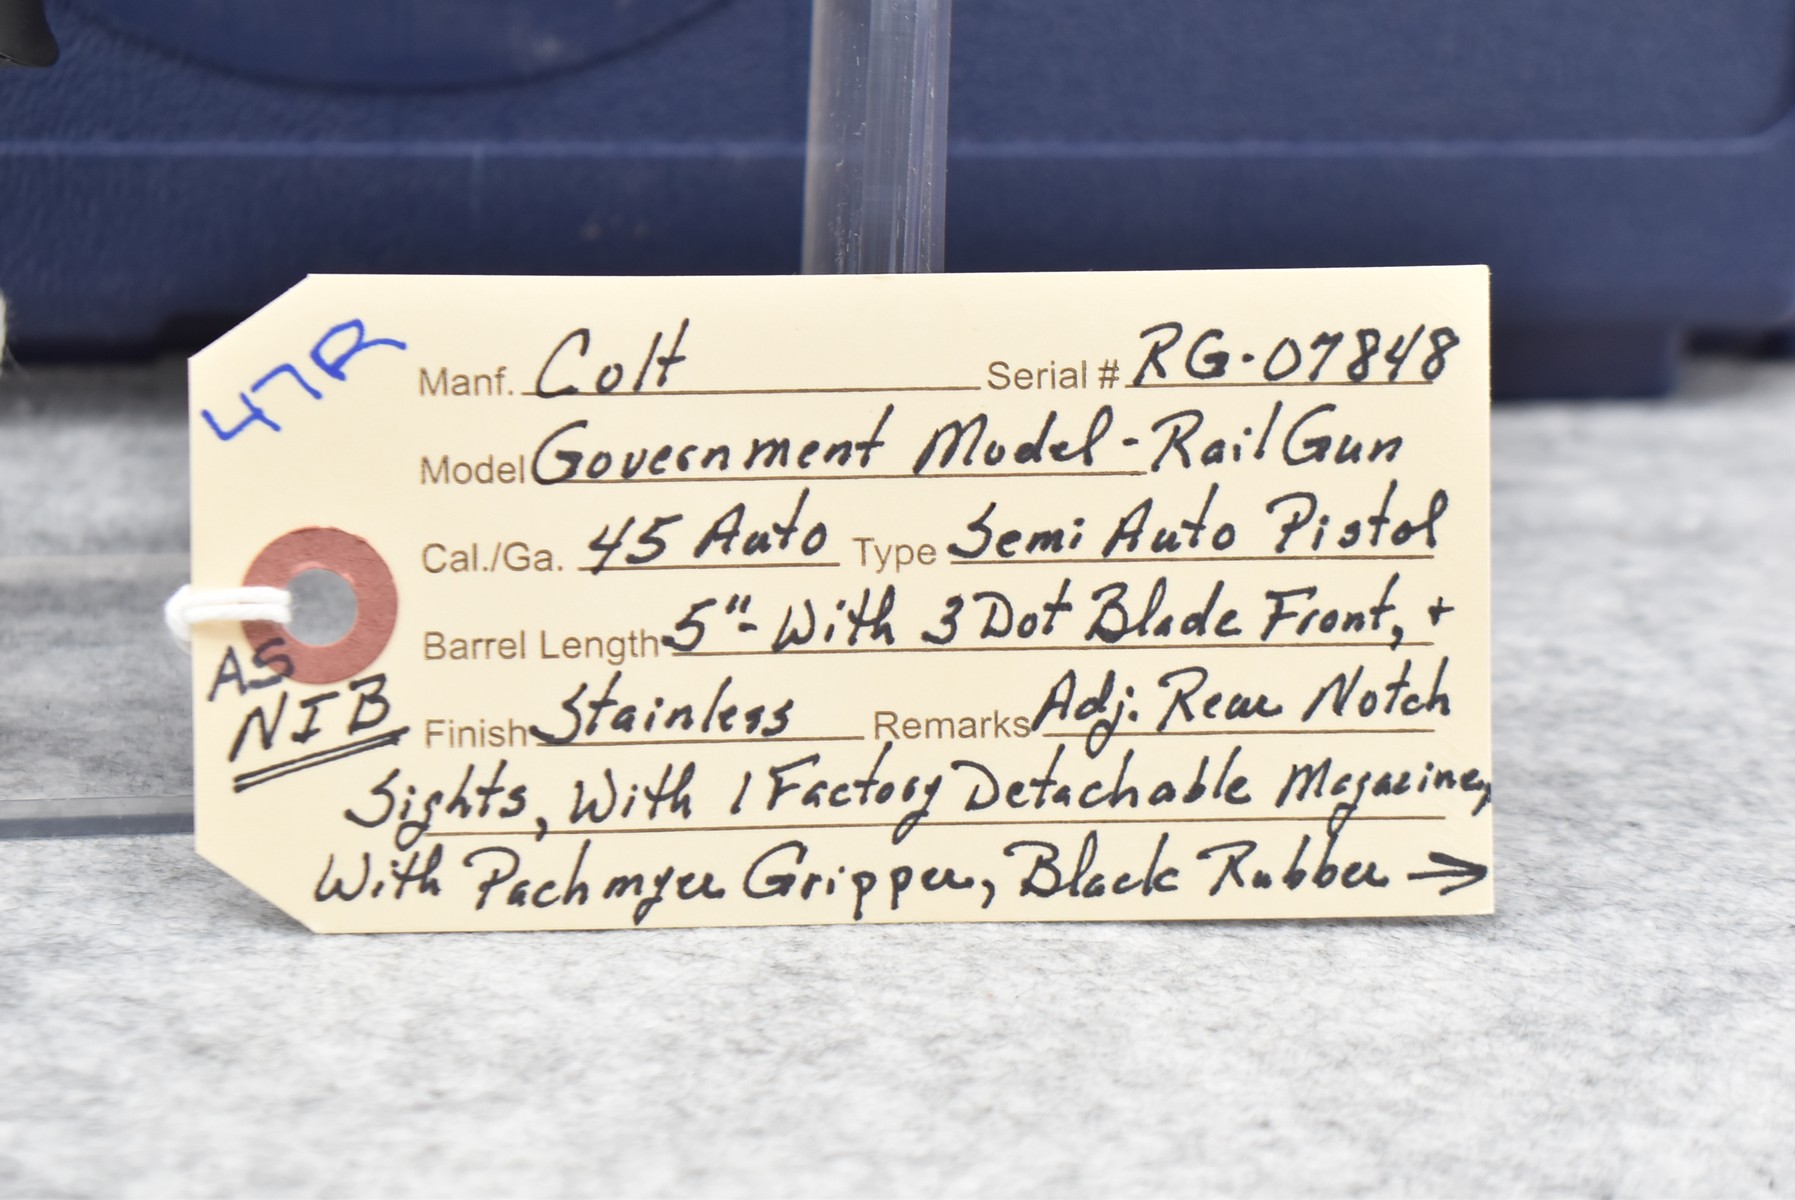 47R
Manf. Colt Serial # RG-07848
Model Government Model-Rail Gun
Cal./Ga. 45 Auto Type Semi Auto Pistol
Barrel Length 5"- With 3 Dot Blade Front, +
AS
NIB
Finish Stainless Remarks Adj. Rear Notch
Sights, With 1 Factory Detachable Magazine,
With Pachmyer Gripper, Black Rubber →